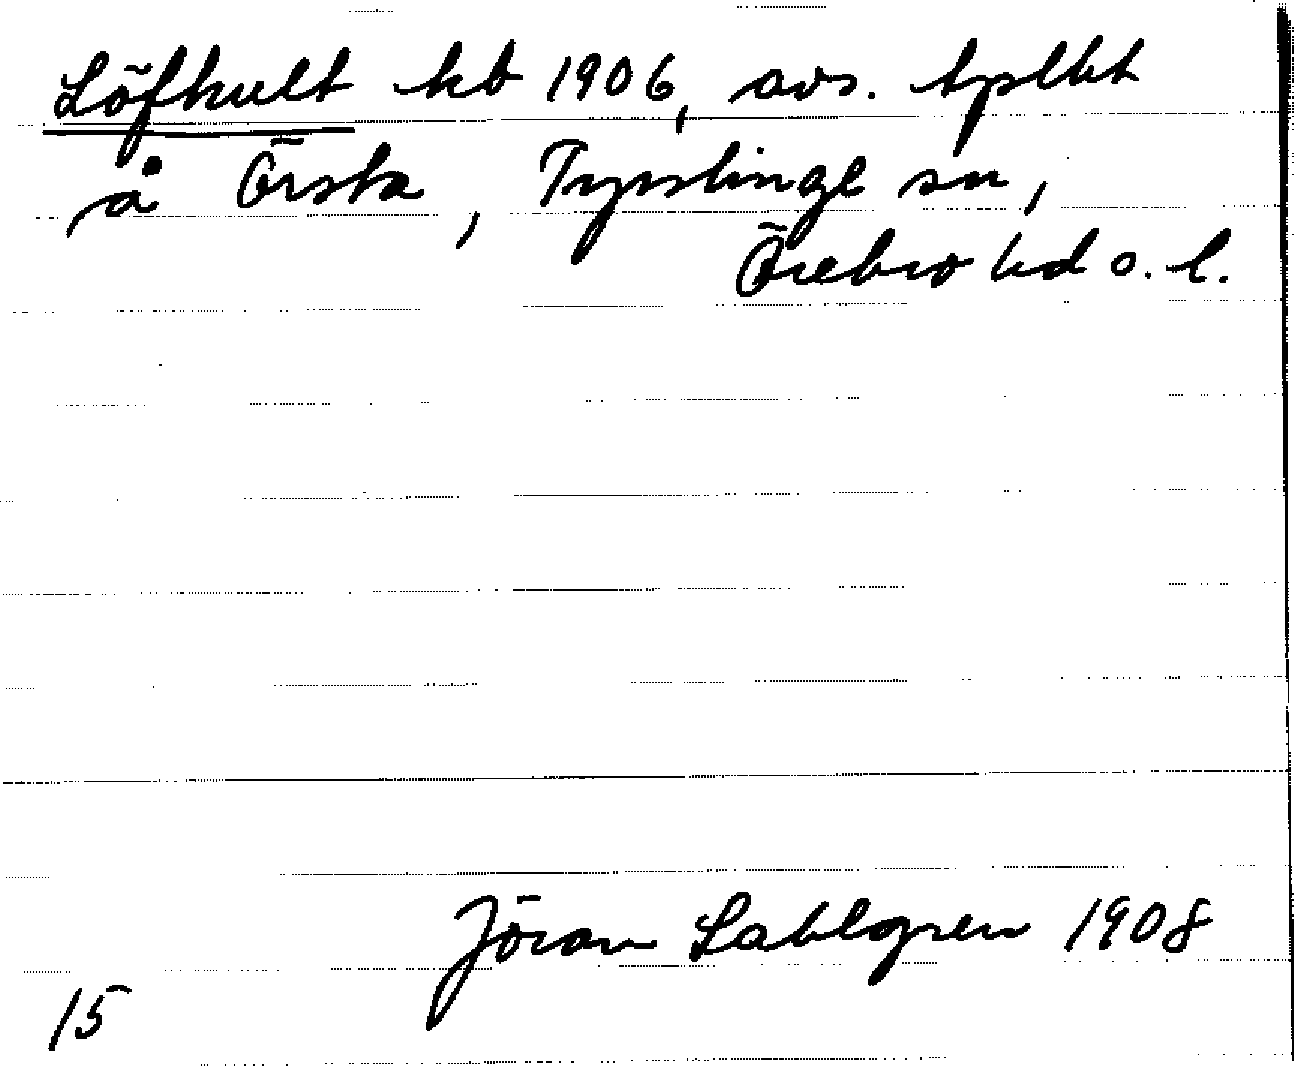 Löfhult kb 1906, avs. tplht
å Örsta, Tysslinge sn,
Örebro hd o. l.
Jöran Sahlgren 1908
15